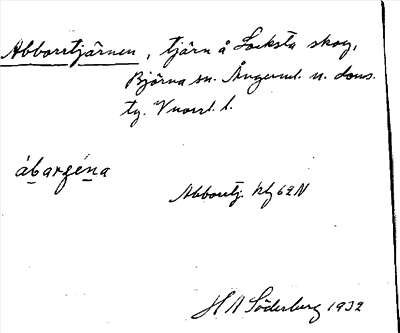 Abborrtjärnen, tjärn å Locksta skog,
Björna sn. Ångerml. n. doms.
tg. Vnorrl. l.
ábarȼéna
Abborrtj. klg 62N
H A Söderberg 1932